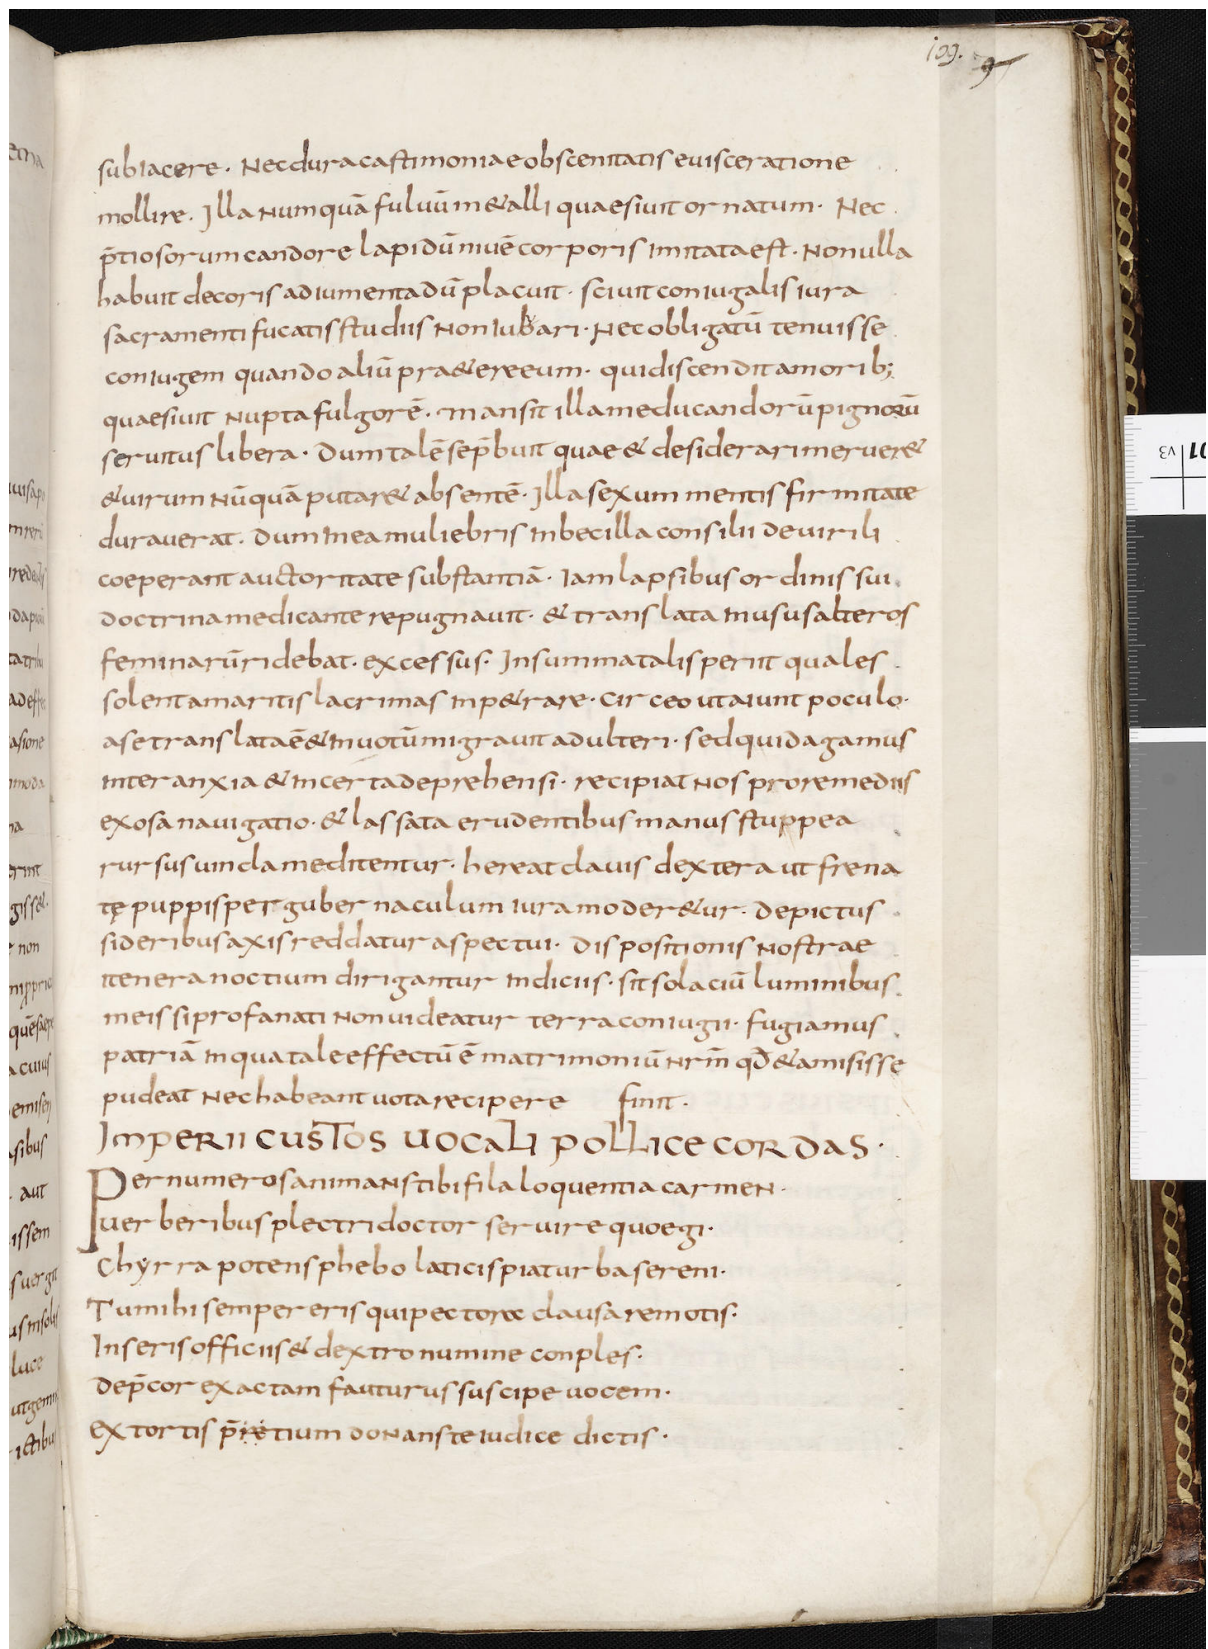 109. 9
subiacere. Nec dura castimoniae obscenitatis euisceratione
mollire. Illa numquā fuluū m&alli quaesiuit ornatum. Nec
p̄tiosorum candore lapidū niuē corporis imitata est. Non ulla
habuit decoris adiumenta dū placuit. sciuit coniugalis iura
sacramenti fucatis studiis non iubari. Nec obligatū tenuisse
coniugem quando aliū pra&ereeum. qui discendit amorib;
quaesiuit nupta fulgorē. mansit illam educandorū pignorū
seruitus libera. Dum talē se p̄buit quae & desiderari meruer&
& uirum nūquā putar& absentē. Illa sexum mentis firmitate
durauerat. Dum in ea muliebris inbecilla consilii de uirili
coeperant auctoritate substantiā. Iam lapsibus ordinis sui
doctrina medicante repugnauit. & translata in usus alteros
feminarū ridebat. excessus. In summa talis periit quales
solent a maritis lacrimas inp&rare. Circeo ut aiunt poculo.
a se translata ē & in uotū migrauit adulteri. sed quid agamus
inter anxia & incerta deprehensi. recipiat nos pro remediis
exosa nauigatio. & lassata erudentibus manus stuppea
rursus uincla meditentur. hereat clauis dextera ut frena
te puppis per gubernaculum iura moder&ur. depictus
sideribus axis reddatur aspectui. dispositionis nostrae
itenera noctium dirigantur indiciis. sit solaciū luminibus
meis si profanati non uideatur terra coniugii. fugiamus
patriā in qua tale effectū ē matrimoniū nrm̄ qd̄ & amisisse
pudeat nec habeant uota recipere finit.
Imperii custos uocali pollice cordas.
Per numeros animans tibi fila loquentia carmen.
uerberibus plectri doctor seruire quoegi.
Chyrra potens phebo laticis piatur ba sereni.
Tu mihi semper eris qui pectore clausa remotis.
Inseris officiis & dextro numine conples.
dep̄cor exactam fauturus suscipe uocem.
extortis p̄retium donans te iudice dictis.